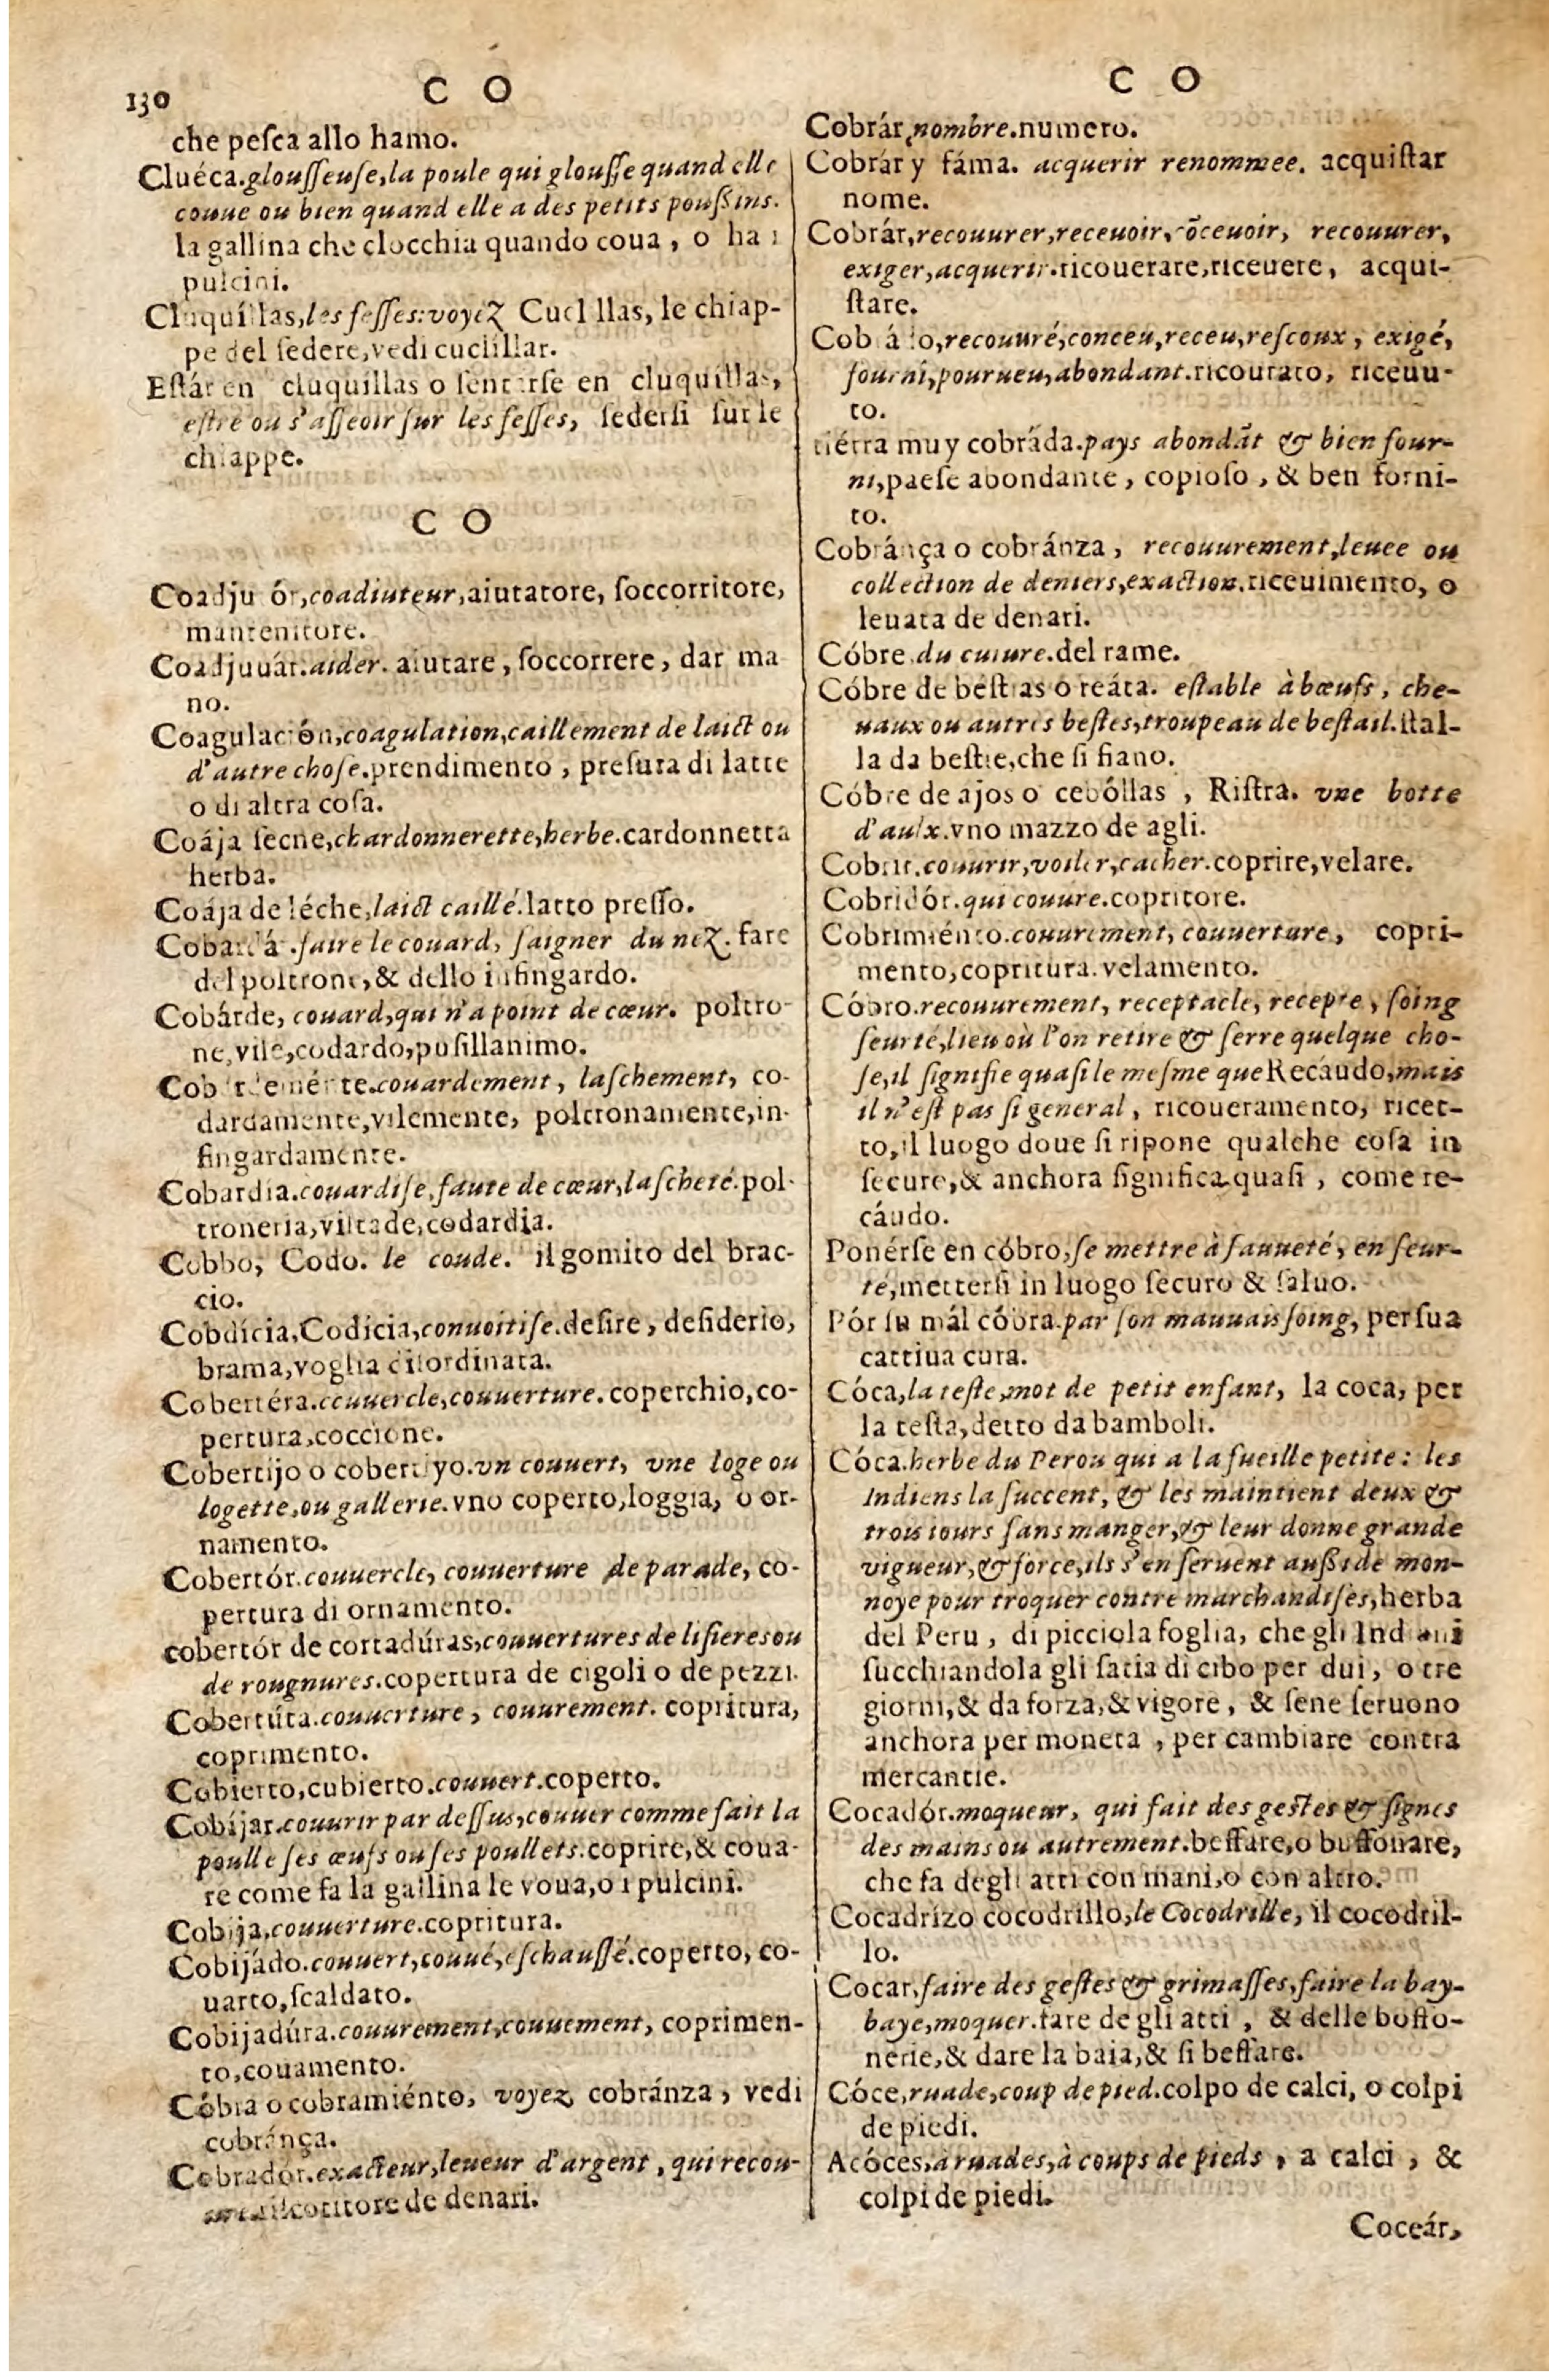 130
C O
che peſca allo hamo.
Cluéca.glouſſeuſe,la poule qui glouſſe quand elle
couue ou bien quand elle a des petits pouſsins.
la gallina che clocchia quando coua , o ha i
pulcini.
Cluquíllas,les feſſes:voyez Cucl llas, le chiap-
pe del ſedere,vedi cuclillar.
Eſtár en cluquillas o ſentarſe en cluquillas,
eſtre ou s'aſſeoir ſur les feſſes, ſederſi ſur le
chiappe.
C O
Coadju ór,coadiuteur,aiutatore, ſoccorritore,
mantenitore.
Coadjuuár.aider. aiutare , ſoccorrere , dar ma
no.
Coagulación,coagulation,caillement de laict ou
d'autre choſe.prendimento , preſura di latte
o di altra coſa.
Coája ſecne,chardonnerette,herbe.cardonnetta
herba.
Coája de léche,laict caillé.latto preſſo.
.faire le couard, ſaigner du nez. fare
del poltrone,& dello infingardo.
Cobárde, couard,qui n'a point de cœur. poltro-
ne,vile,codardo,puſillanimo.
couardement , laſchement, co-
dardamente,vilemente, poltronamente,in-
fingardamente.
Cobardia.couardiſe,faute de cœur,laſcheté.pol-
troneria,viltade,codardia.
Cobbo, Codo. le coude. il gomito del brac-
cio.
Cobdícia,Codícia,conuoitiſe.deſire , deſiderio,
brama,voglia diſordinata.
Cobertéra.couuercle,couuerture. coperchio,co-
pertura,coccione.
Cobertijo o cobertuyo.vn couuert, vne loge ou
logette,ou gallerie.vno coperto,loggia, o or-
namento.
Cobertór.couuercle, couuerture de parade, co-
pertura di ornamento.
cobertór de cortadúras,couuertures de liſieres ou
de rougnures.copertura de cigoli o de pezzi.
Cobertúra.couuerture , couurement. copritura,
coprimento.
Cobierto,cubierto.couuert.coperto.
Cobíjar.couurir par deſſus,couuer comme fait la
poulle ſes œufs ou ſes poullets.coprire,& coua-
re come fa la gallina le voua,o i pulcini.
Cobija,couuerture.copritura.
Cobijádo.couuert,couué,eſchauffé.coperto, co-
uarto,ſcaldato.
Cobijadúra.couurement,couuement, coprimen-
to,couamento.
Cóbra o cobramiénto, voyez cobránza , vedi
cobránça.
Cobradór.exacteur,leueur d'argent , qui recou-
de denari.
C O
Cobrár,nombre.numero.
Cobrár y fáma. acquerir renommee. acquiſtar
nome.
Cobrár,recouurer,receuoir, cõceuoir, recouurer,
exiger,acquerir.ricouerare,riceuere, acqui-
ſtare.
Cob á do,recouuré,conceu,receu,reſcoux , exigé,
fourni,pourueu,abondant.ricourato, riceuu-
to.
tiérra muy cobráda.pays abondãt & bien four-
ni,paeſe abondante , copioſo , & ben forni-
to.
Cobránça o cobránza , recouurement,leuee ou
collection de deniers,exaction.riceuimento, o
leuata de denari.
Cóbre.du cuiure.del rame.
Cóbre de béſtias o reáta. eſtable à bœufs , che-
uaux ou autres beſtes,troupeau de beſtail.ſtal-
la da beſtie,che ſi fiano.
Cóbre de ajos o cebóllas , Riſtra. vne botte
d'aulx.vno mazzo de agli.
Cobrir.couurir,voiler,cacher.coprire,velare.
Cobridór.qui couure.copritore.
Cobrimiénto.couurement, couuerture , copri-
mento,copritura.velamento.
Cóbro.recouurement, receptacle, recepte , ſoing
ſeurté,lieu où l'on retire & ſerre quelque cho-
ſe,il ſignifie quaſi le meſme que Recáudo,mais
il n'eſt pas ſi general , ricoueramento, ricet-
to,il luogo doue ſi ripone qualche coſa in
ſecuro,& anchora ſignifica quaſi , come re-
cáudo.
Ponérſe en cóbro,ſe mettre à ſauueté, en ſeur-
té,metterſi in luogo ſecuro & ſaluo.
Pór ſu mál cóbra.par ſon mauuais ſoing, per ſua
cattiua cura.
Cóca,la teſte,mot de petit enfant, la coca, per
la teſta,detto da bamboli.
Cóca.herbe du Perou qui a la fueille petite : les
Indiens la ſuccent, & les maintient deux &
trois iours ſans manger,& leur donne grande
vigueur,& force,ils s'en ſeruent auſsi de mon-
noye pour troquer contre marchandiſes,herba
del Peru , di picciola foglia, che gli Indiani
ſucchiandola gli ſatia di cibo per dui, o tre
giorni,& da forza,& vigore , & ſene ſeruono
anchora per moneta , per cambiare contra
mercantie.
Cocadór.moqueur, qui fait des geſtes & ſignes
des mains ou autrement.beffare,o buffonare,
che fa degli atti con mani,o con altro.
Cocadrízo cocodrillo,le Cocodrille, il cocodril-
lo.
Cocar.faire des geſtes & grimaſſes,faire la bay-
baye,moquer.fare de gli atti , & delle boffo-
nerie,& dare la baia,& ſi beffare.
Cóce,ruade,coup de pied.colpo de calci, o colpi
de piedi.
Acóces,à ruades,à coups de pieds , a calci , &
colpi de piedi.
Coceár,